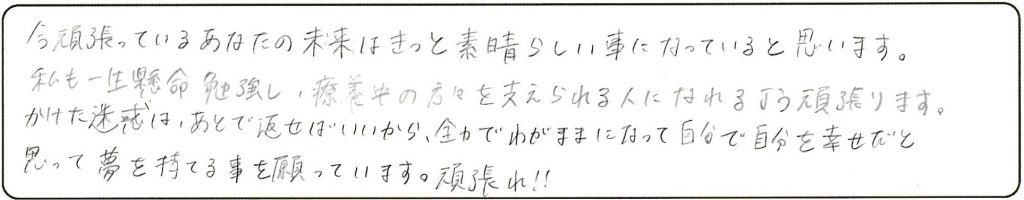 今頑張っているあなたの未来はきっと素晴らしい事になっていると思います。
私も一生懸命勉強し、療養中の方々を支えられる人になれるよう頑張ります。
かけた迷惑は、あとで返せばいいから、全力でわがままになって自分で自分を幸せだと
思って夢を持てる事を願っています。頑張れ!!